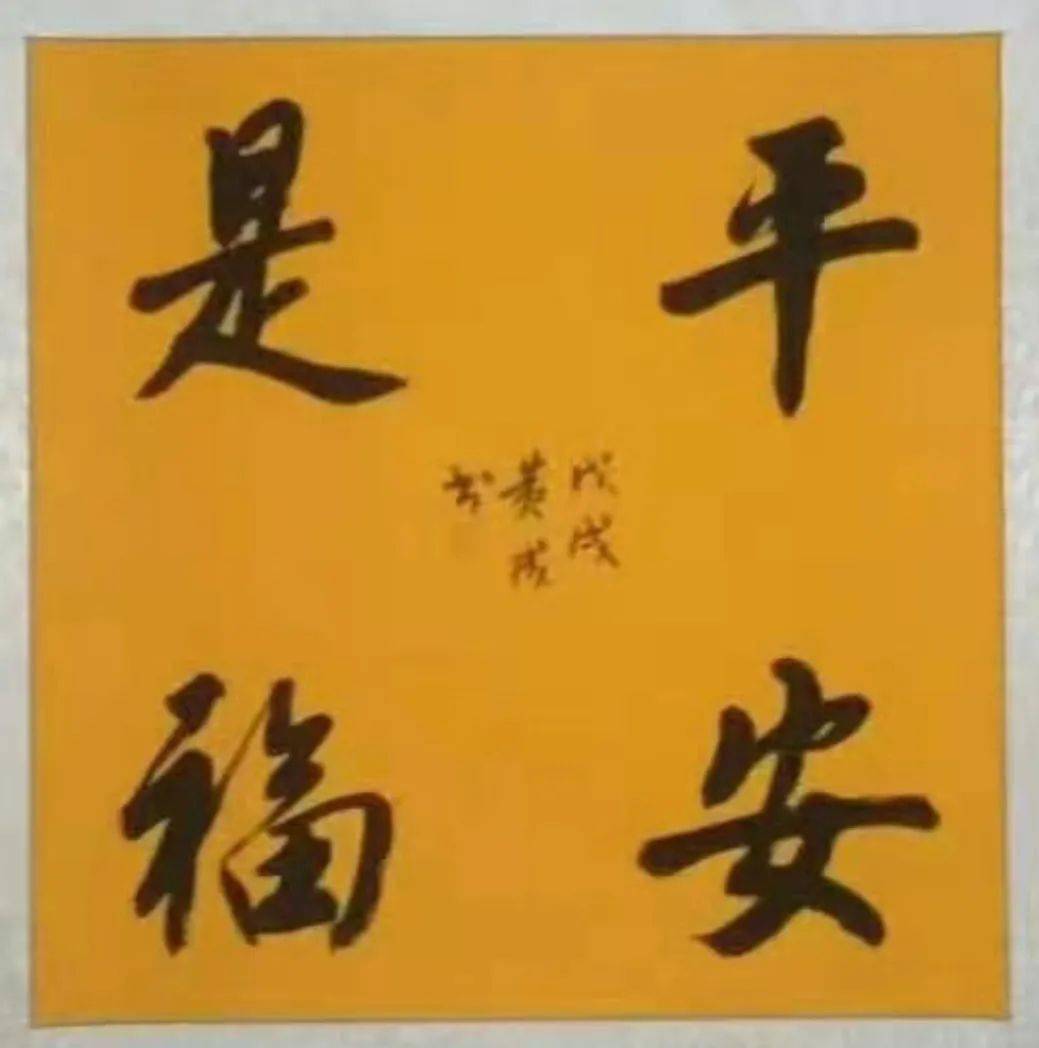 平安
是福
戊戌
黄成
书